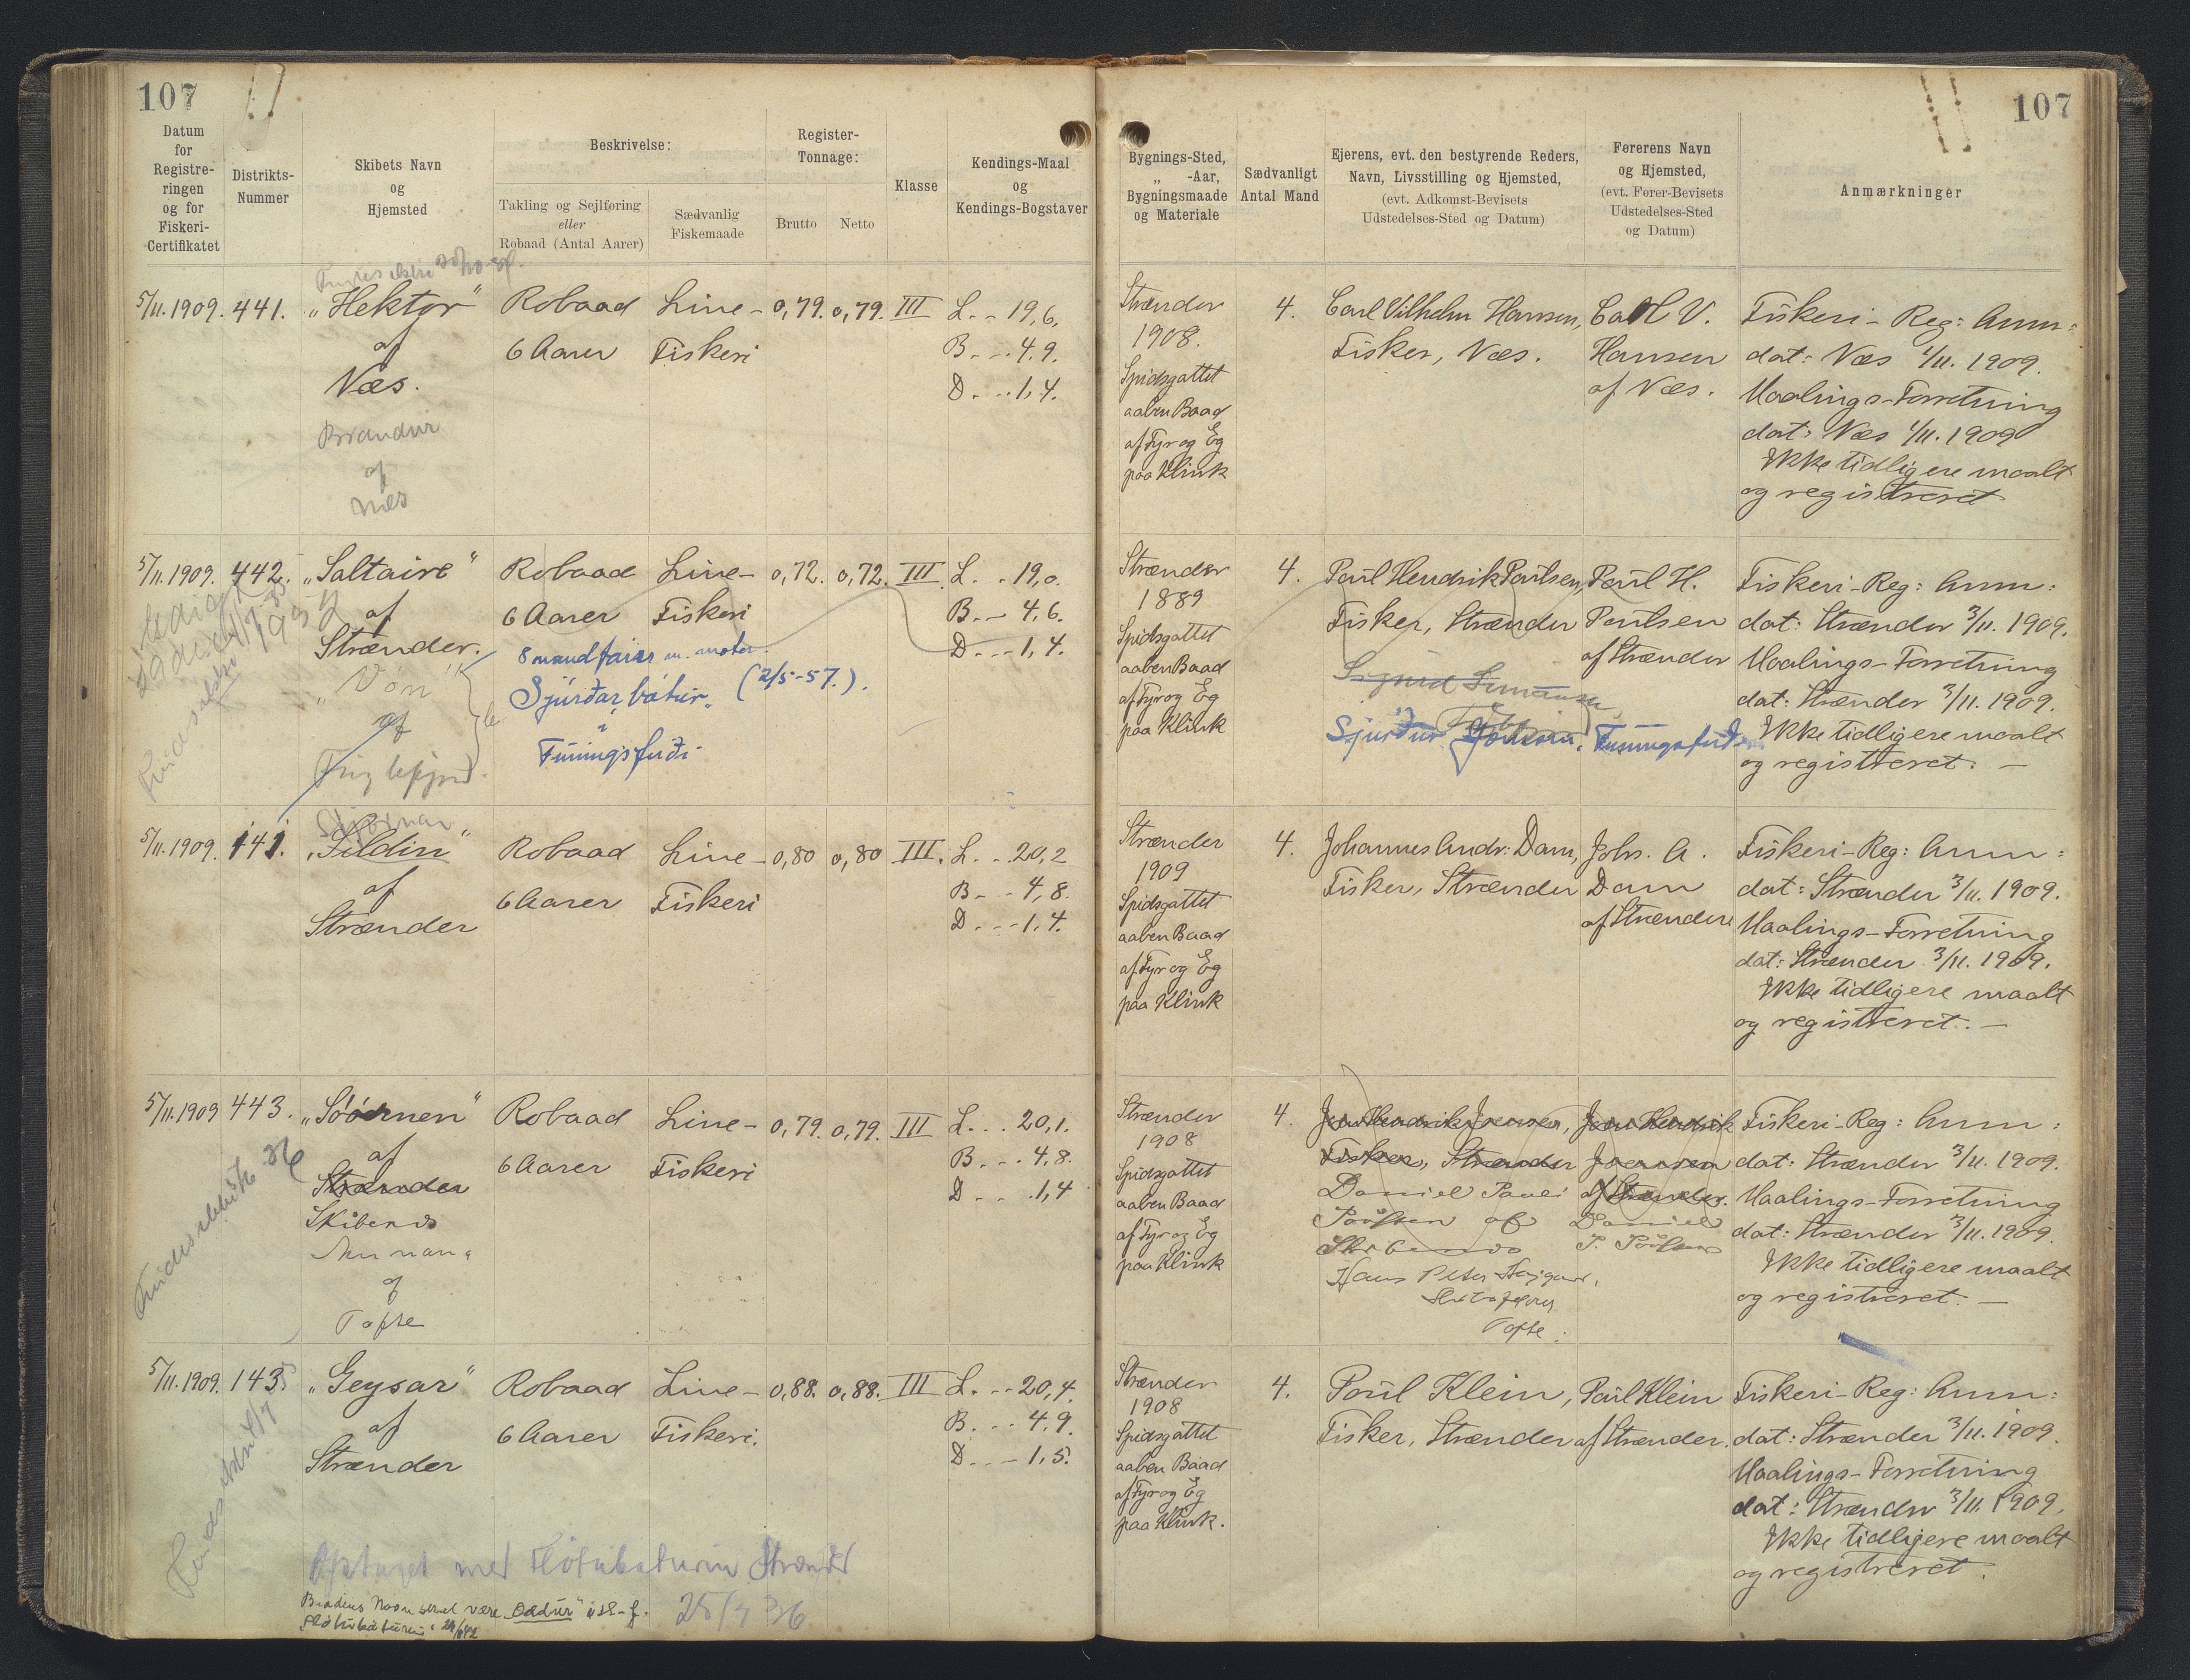 107
107
Datum
for
Registre-
ringen
og for
Fiskeri-
Certifikatet
Distrikts-
Nummer
Skibets Navn
og
Hjemsted
Beskrivelse:
Takling og Sejlføring
eller
Robaad (Antal Aarer)
Sædvanlig
Fiskemaade
Register-
Tonnage:
Brutto
Netto
Klasse
Kendings-Maal
og
Kendings-Bogstaver
Bygnings-Sted,
„ -Aar,
Bygningsmaade
og Materiale
Sædvanligt
Antal Mand
Ejerens, evt. den bestyrende Reders,
Navn, Livsstilling og Hjemsted,
(evt. Adkomst-Bevisets
Udstedelses-Sted og Datum)
Førerens Navn
og Hjemsted,
(evt. Fører-Bevisets
Udstedelses-Sted
og Datum)
Anmærkninger
5/11. 1909. 441.
„Hektor"
af
Næs.
Brandur
af
Næs
Robaad
6 Aarer
Line-
Fiskeri
0,79. 0,79. III
L. - 19,6.
B. - . 4.9.
D. - . 1,4.
Strænder
1908.
Spidsgattet
aaben Baad
af Fyr og Eg
paa Klink
4.
Carl Vilhelm Hansen,
Fisker, Næs.
Carl V.
Hansen
af Næs.
Fiskeri-Reg: Anm:
dat: Næs 1/11. 1909.
Maalings-Forretning
dat: Næs 1/11. 1909
Ikke tidligere maalt
og registreret
5/11. 1909. 442.
„Saltaire"
af
Strænder.
„Vón"
af
Robaad
6 Aarer
Line-
Fiskeri
8 mandfarar m. motor.
Sjúrðar bátur„ (2/5-57.).
i
Funningsfirði
0,72. 0,72. III
L. - 19,0.
B. - 4,6.
D. - - 1,4.
Strænder
1889
Spidsgattet
aaben Baad
af Fyr og Eg
paa Klink
4.
Poul Hendrik Poulsen,
Fisker, Strænder
Sjúrður Joensen, Funningsfirði
Poul H.
Poulsen
af Strænder
Fiskeri-Reg: Anm:
dat: Strænder 3/11. 1909.
Maalings-Forretning
dat: Strænder 3/11. 1909.
Ikke tidligere maalt
og registreret. —
5/11. 1909. 141.
„Sildin"
af
Strænder
Robaad
6 Aarer
Line-
Fiskeri
0,80 0,80 III.
L. . . 20,2
B. - - 4,8.
D. - - 1,4.
Strænder
1909
Spidsgattet
aaben Baad
af Fyr og Eg
paa Klink
4.
Johannes Andr: Dam,
Fisker, Strænder
Johs. A.
Dam
af Strænder
Fiskeri-Reg: Anm:
dat: Strænder 3/11. 1909.
Maalings-Forretning
dat: Strænder 3/11. 1909.
Ikke tidligere maalt
og registreret. —
5/11. 1909 443.
„Søørnen"
af
Strænder
Skibenæs
af
Tofte
Robaad
6 Aarer
Line-
Fiskeri
0,79. 0,79. III
L. . . 20,1.
B. - . 4,8.
D. - . 1,4
Strænder
1908
Spidsgattet
aaben Baad
af Fyr og Eg
paa Klink
4.
Jens Hendrik Joensen,
Fisker, Strænder
Daniel Pauli
Poulsen af
Hans Peter Højgaard,
Tofte.
Jens Hendrik
Joensen
af Strænder.
Daniel
P. Poulsen
Fiskeri-Reg: Anm:
dat: Strænder 3/11. 1909.
Maalings-Forretning
dat: Strænder 3/11. 1909.
Ikke tidligere maalt
og registreret. —
5/11. 1909. 143.
„Geysar"
af
Strænder
Robaad
6 Aarer
Line-
Fiskeri.
0,88. 0,88. III
L. - - 20,4.
B. - - 4,9.
D. - - 1,5.
Strænder
1908
Spidsgattet
aaben Baad
af Fyr og Eg
paa Klink.
4.
Poul Klein,
Fisker, Strænder
Poul Klein
af Strænder.
Fiskeri-Reg: Anm:
dat: Strænder 3/11. 1909.
Maalings-Forretning
dat: Strænder 3/11. 1909.
Ikke tidligere maalt
og registreret.
Optaget med Fløtubaturin Strænder
25/7 36
Baadens Navn skal være „Oddur"